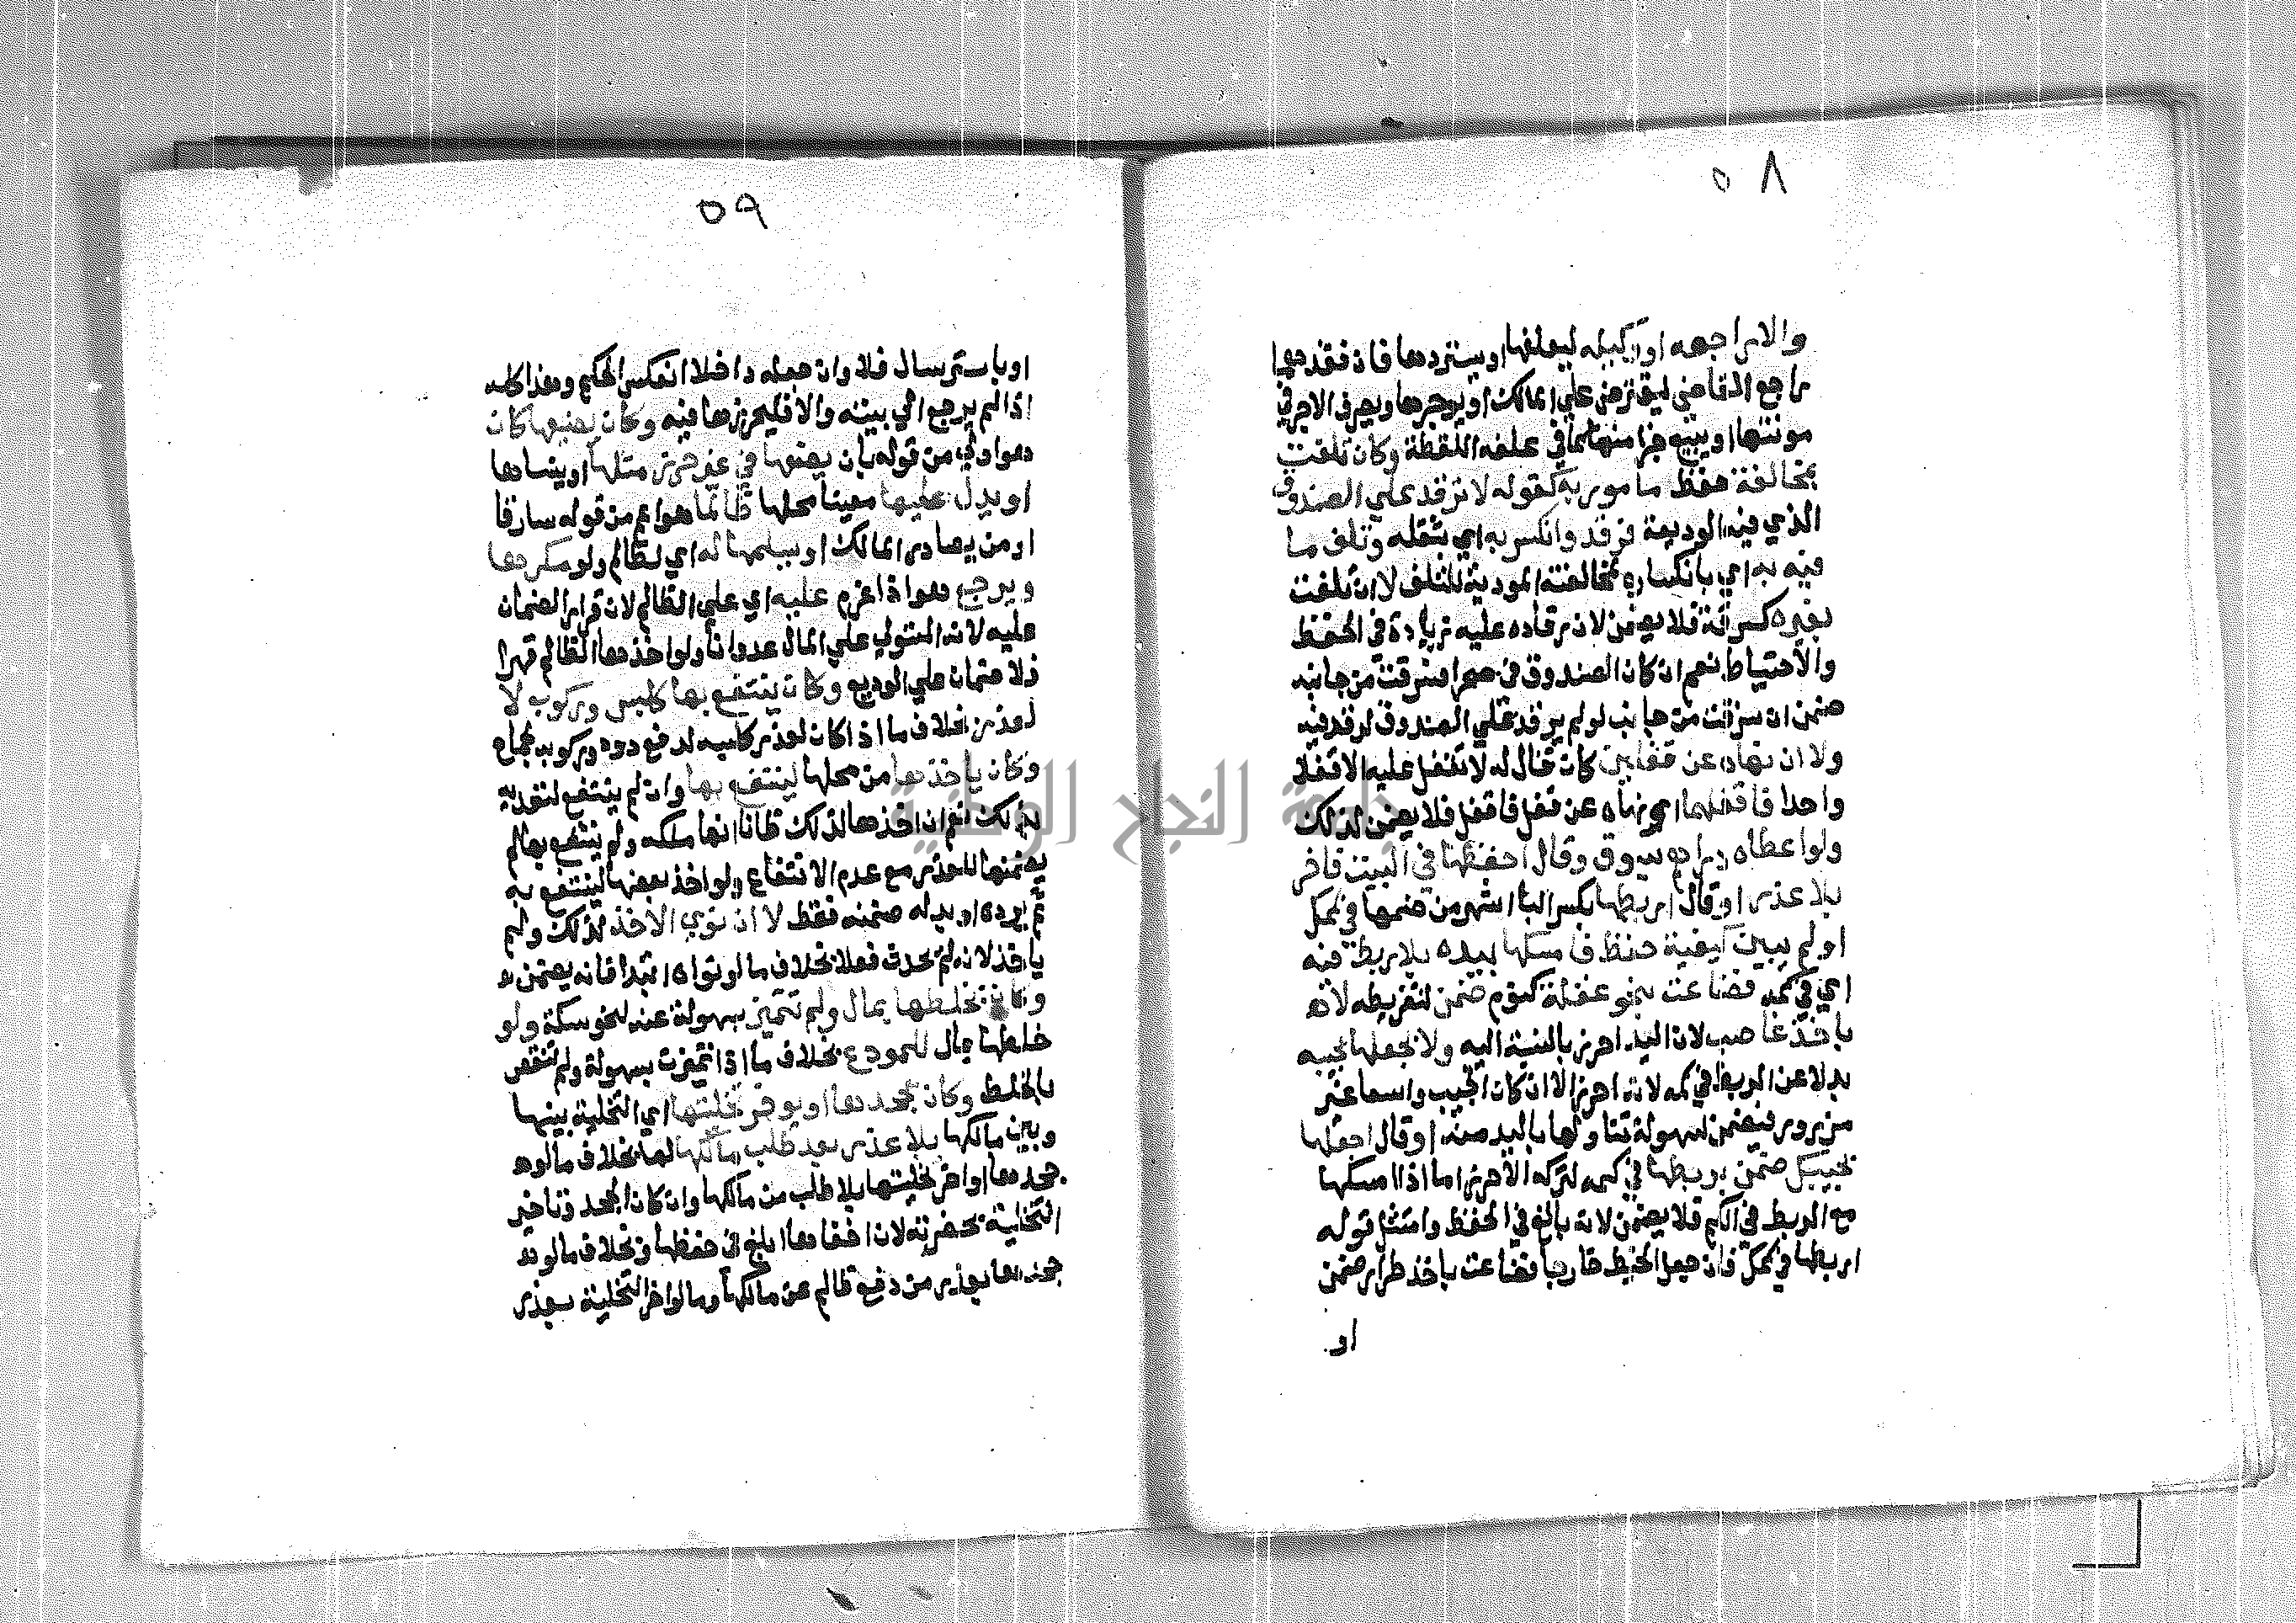 ٥٨
والا راجعه او وكيله ليعلفها او يستردها فان فقدهما
راجع القاضي ليقترض علي المالك او يوجرها ويصرف الاجرة في
مونتها او يبيع جزا منها كما في علف اللقطة وكان تلفت
بمخالفة حفظ مامور به كقوله لا ترقد علي الصندوق
الذي فيه الوديعة فرقد وانكسر به اي بثقله وتلف ما
فيه به اي بانكساره لمخالفته المودية للتلف لا ان تلفت
بغيره كسرقة فلا يضمن لان رقاده عليه زيادة في الحفظ
والاحتياط نعم ان كان الصندوق في صحرا فسرقت من جانبه
ضمن ان سرقت من جانب لو لم يرقد علي الصندوق لرقد فيه
ولا ان نهاه عن قفلين كان قال له لا تقفل عليه الا قفلا
واحدا فاقفلهما اي نهاه عن قفل فاقفل فلا يضمن لذلك
ولو اعطاه دراهم بسوق وقال احفظها في البيت فاخر
بلا عذر او قال اربطها بكسر البا اشهر من ضمها في كمك
او لم يبين كيفية حفظ فامسكها بيده بلا ربط فيه
اي في كمه فضاعت بنحو غفلة كنوم ضمن لتفريطه لا
باخذ غاصب لان اليد احرز بالنسبة اليه ولا بجعلها بجيبه
بدلا عن الربط في كمه لانه احرز الا ان كان الجيب واسعا غير
مزرور فيضمن لسهولة تناولها باليد منه او قال اجعلها
بجيبك ضمن بربطها في كمه لتركه الاحرز اما اذا امسكها
مع الربط في الكم فلا يضمن لانه بالغ في الحفظ وامتثل قوله
اربطها في كمك فان جعل الخيط خارجا فضاعت باخذ طرار ضمن
او
٥٩
او باسترسال فلا وان جعله داخلا انعكس الحكم وهذا كله
اذا لم يرجع الي بيته والا فليحرزها فيه وكان يضيعها كان
هو اولي من قوله بان يضعها في غير حرز مثلها او ينساها
او يدل عليها معينا محلها ظالما هو اعم من قوله سارقا
او من يصادر المالك او يسلمها له اي لظالم ولو مكرها
ويرجع هو اذا غرم عليه اي علي الظالم لان قرار الضمان
عليه لانه المتولي علي المال عدوانا ولو اخذها الظالم قهرا
فلا ضمان علي الوديع وكان ينتفع بها كلبس وركوب لا
لعذر بخلاف ما اذا كان لعذر كلبسه لدفع دود وركوب لجماح
وكان ياخذها من محلها لينتفع بها وان لم ينتفع لتعديه
بذلك نعم ان اخذها لذلك ظانا انها ملكه ولم ينتفع بها لم
يضمنها للعذر مع عدم الانتفاع ولو اخذ بعضها لينتفع به
ثم يرده او بدله ضمنه فقط لا ان نوي الاخذ لذلك ولم
ياخذ لانه لم يحدث فعلا بخلاف ما لو نواه ابتدا فانه يضمن
وكان يخلطها بمال ولم تتميز بسهولة عنه لنحو سكة ولو
خلطها بمال للمودع بخلاف ما اذا تميزت بسهولة ولم تنقص
بالخلط وكان يجحدها او يوخر تخليتها اي التخلية بينها
وبين مالكها بلا عذر بعد طلب مالكها لها بخلاف ما لو
جحدها او اخر تخليتها بلا طلب من مالكها وان كان الجحد وتاخير
التخلية بحضرته لان اخفاها ابلغ في حفظها وبخلاف ما لو
جحدها بعذر من دفع ظالم عن مالكها وما لو اخر التخلية بعذر
جامعة النجاح الوطنية